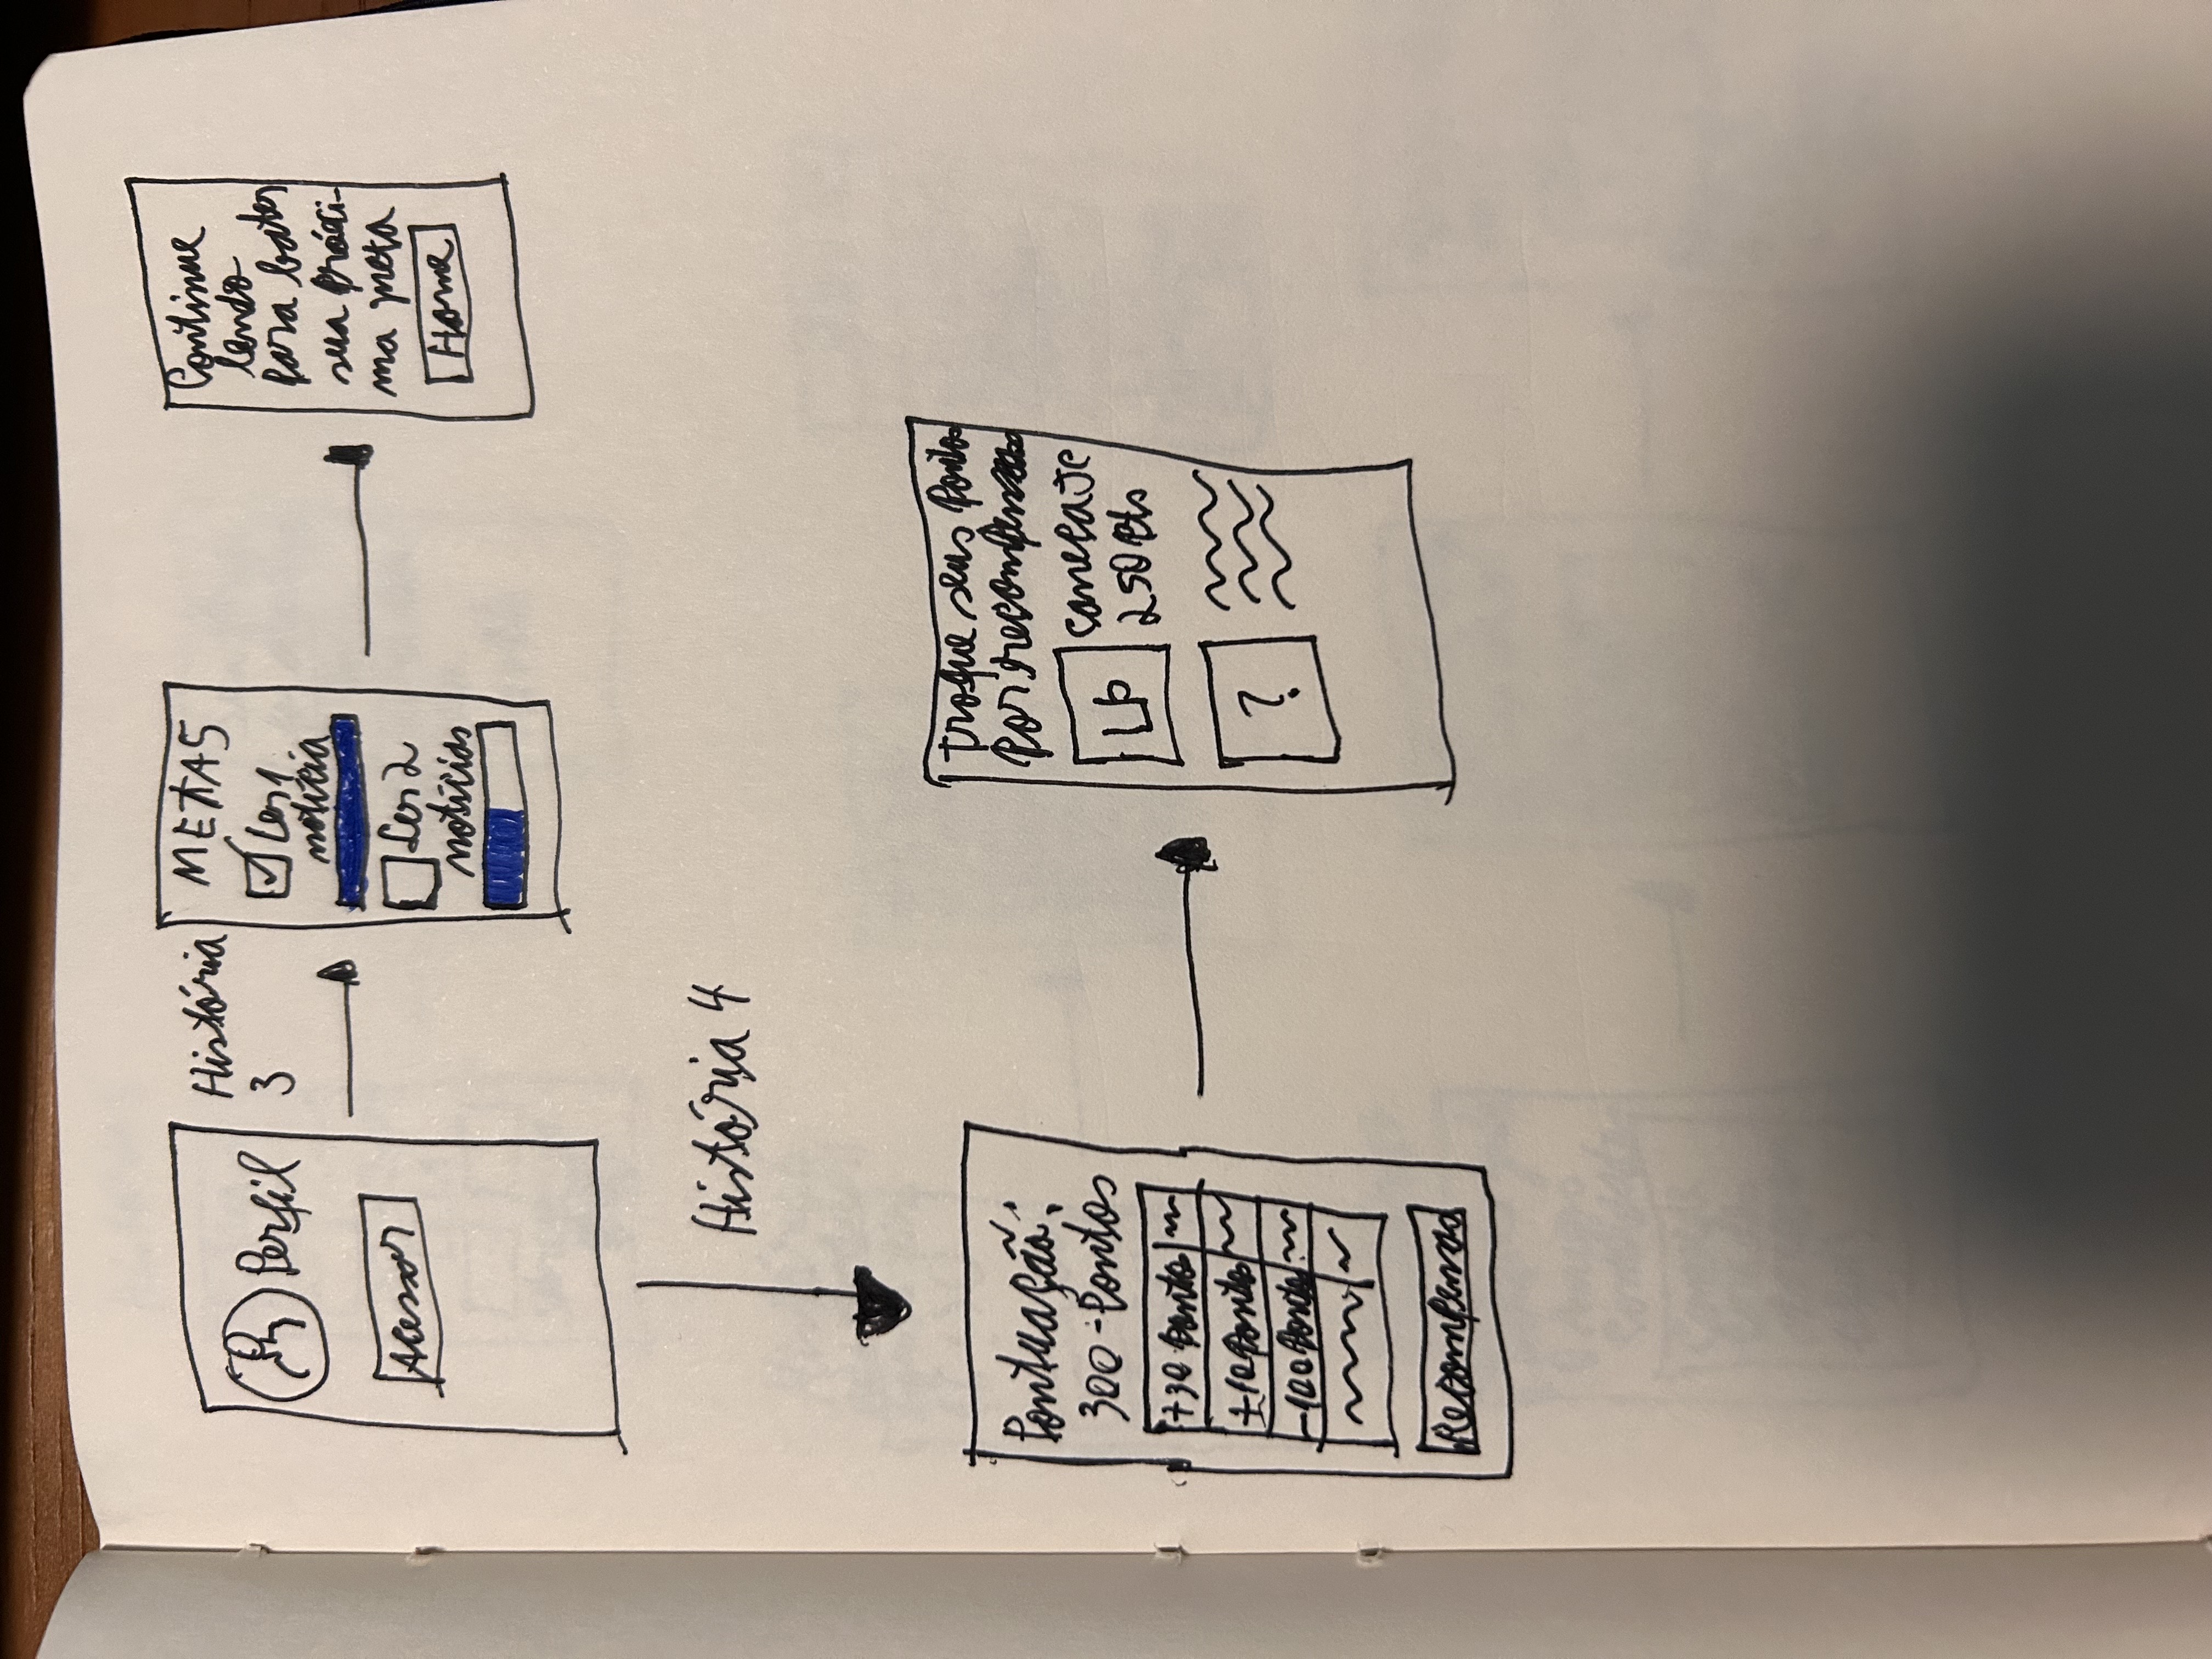 Perfil
Acessar
História
3
METAS
Ler 1
notícia
Ler 2
notícias
Continue
lendo
para bater
sua próxi-
ma meta
Home
História 4
Pontuação:
300 - Pontos
+30 Pontos
+10 Pontos
-100 Pontos
Recompensas
Troque seus Pontos
Por recompensas
Caneca JC
250 Pts
?